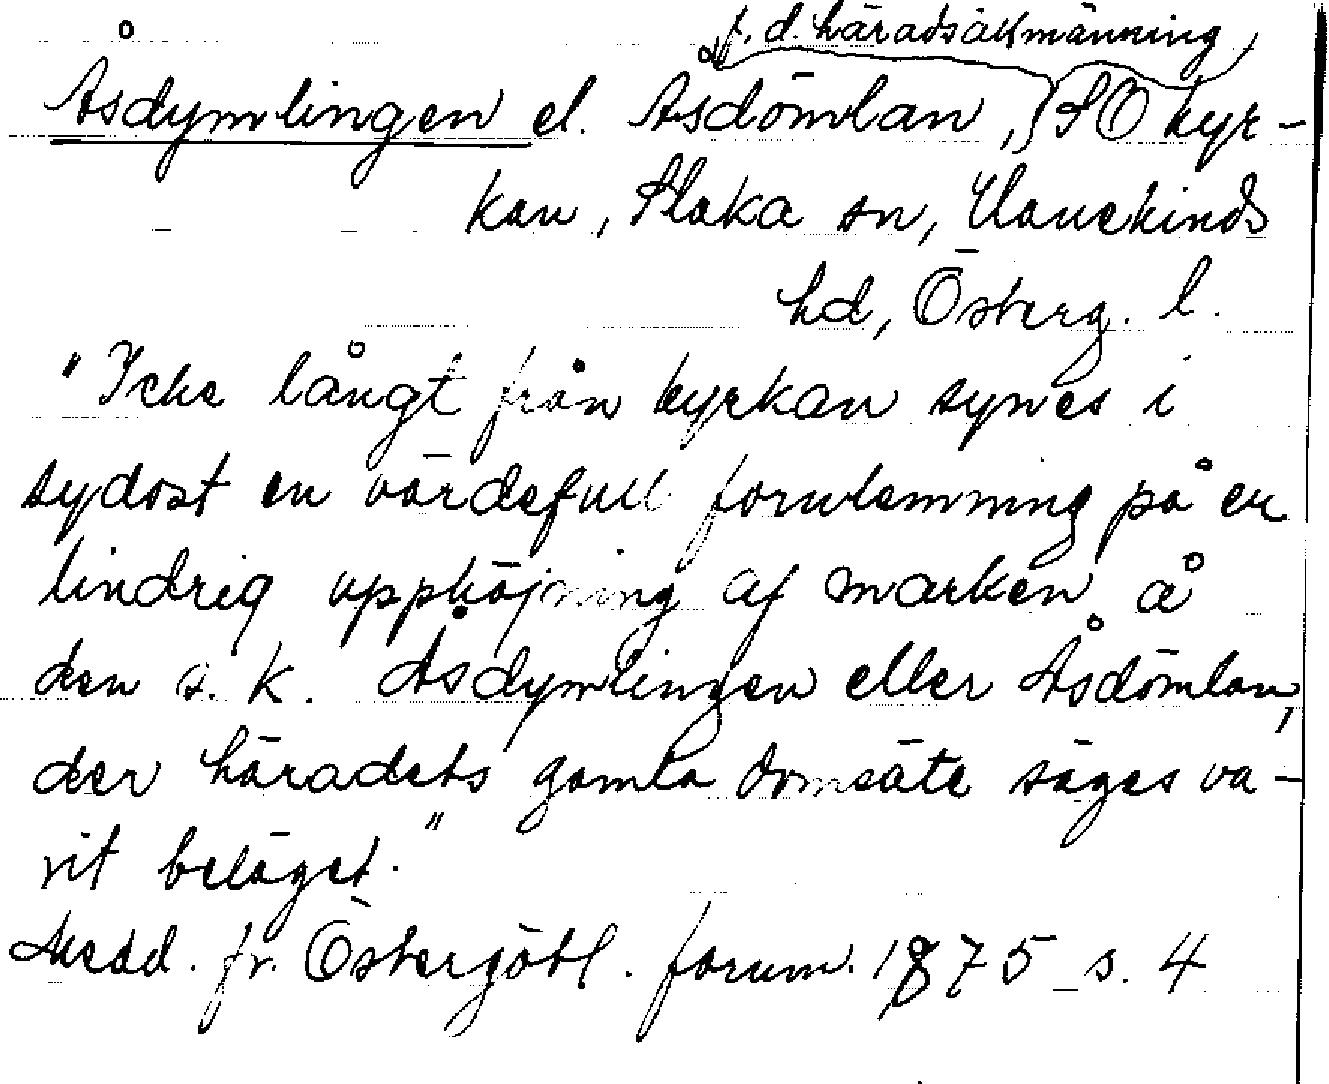 f. d. häradsallmänning,
Åsdymlingen el. Åsdömlan, SO kyr-
kan, Slaka sn, Hanekinds
hd, Österg. l.
"Icke långt från kyrkan synes i
sydost en värdefull fornlemning på en
lindrig upphöjning af marken å
den s. k. Åsdymlingen eller Åsdömlan,
der häradets gamla domsäte säges va-
rit beläget."
Medd. fr. Östergötl. fornm. 1875 s. 4